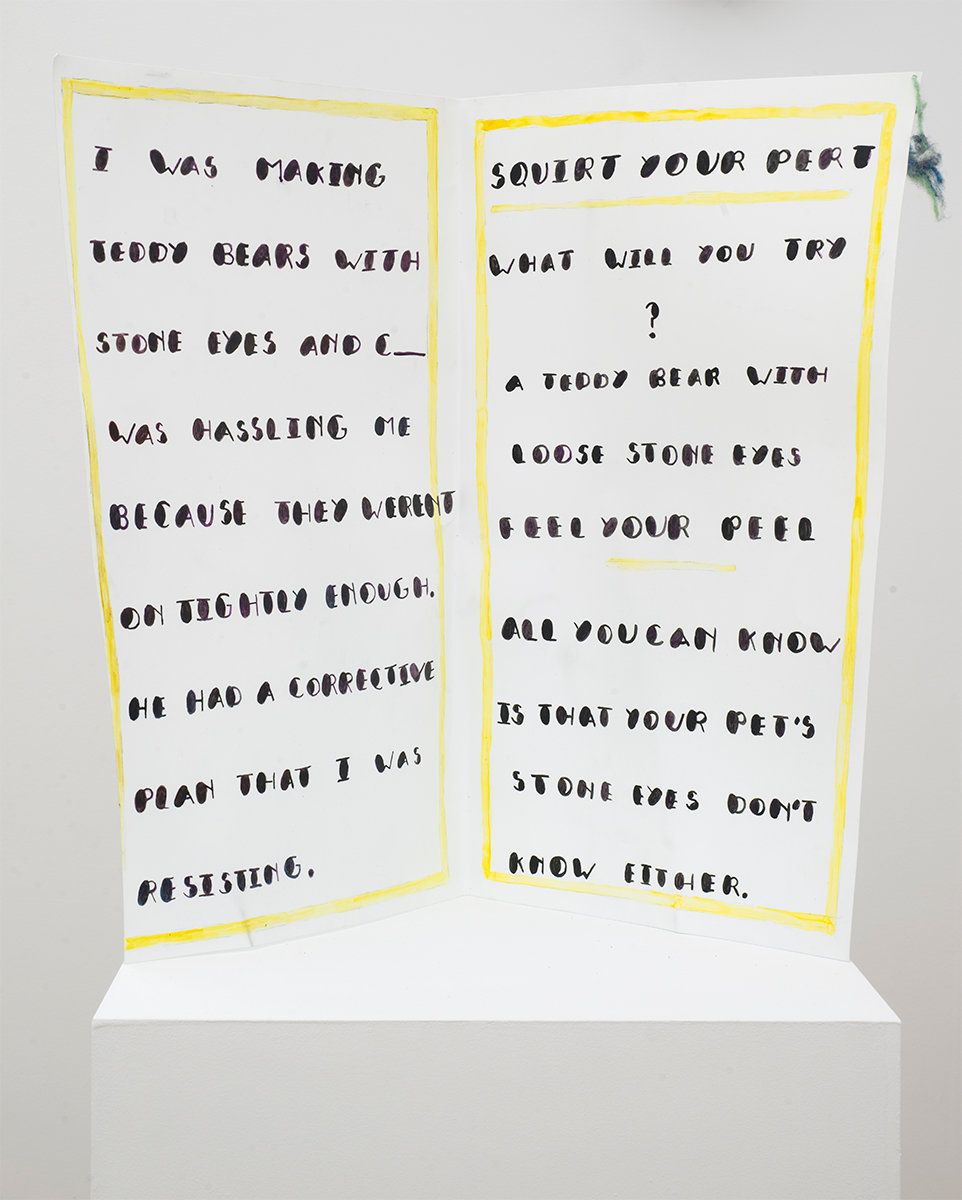 I WAS MAKING
TEDDY BEARS WITH
STONE EYES AND C__
WAS HASSLING ME
BECAUSE THEY WERENT
ON TIGHTLY ENOUGH.
HE HAD A CORRECTIVE
PLAN THAT I WAS
RESISTING.
SQUIRT YOUR PERT
WHAT WILL YOU TRY
?
A TEDDY BEAR WITH
LOOSE STONE EYES
FEEL YOUR PEEL
ALL YOU CAN KNOW
IS THAT YOUR PET'S
STONE EYES DON'T
KNOW EITHER.